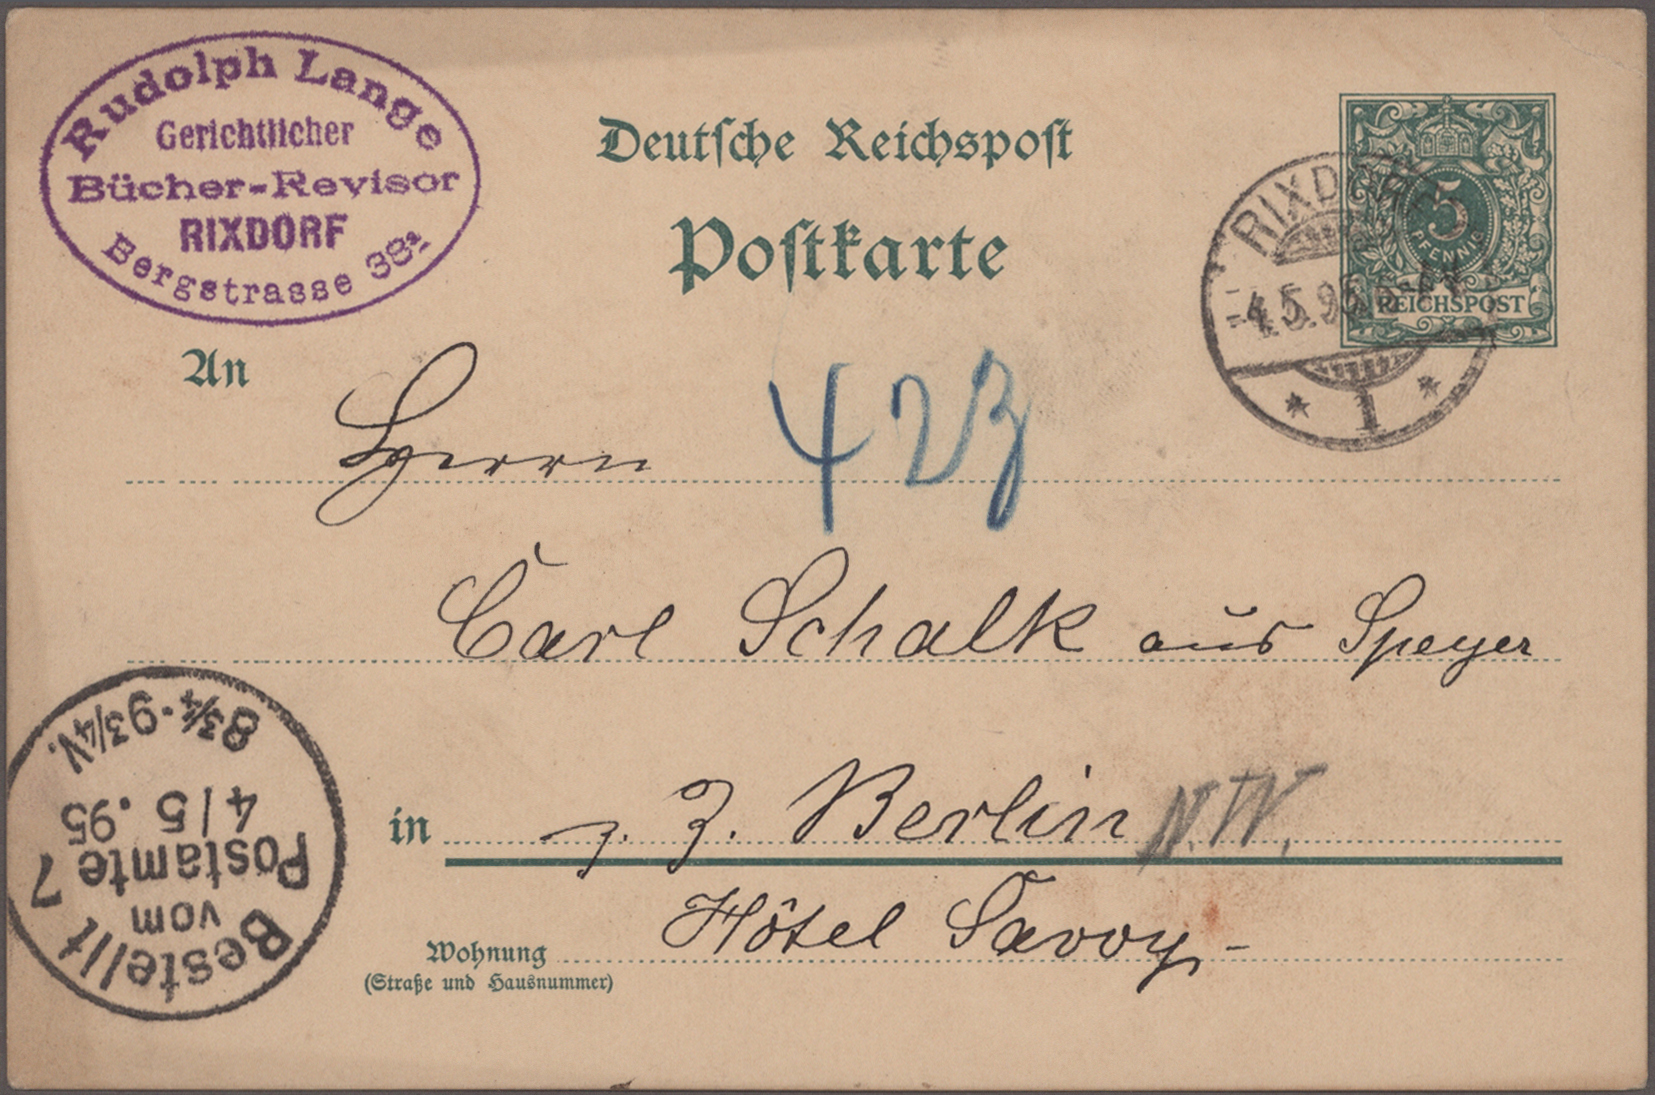 Rudolph Lange
Gerichtlicher
Bücher-Revisor
RIXDORF
Bergstrasse 38
Deutsche Reichspost
Postkarte
5
PFENNIG
REICHSPOST
RIXDORF
4.5.95
* 1 *
An
Herrn
423
Carl Schalk aus Speyer
in z. Z. Berlin N.W.
Hôtel Savoy
Wohnung
(Straße und Hausnummer)
Bestellt
vom
Postamte 7
4/5.95
8¾-9¾V.